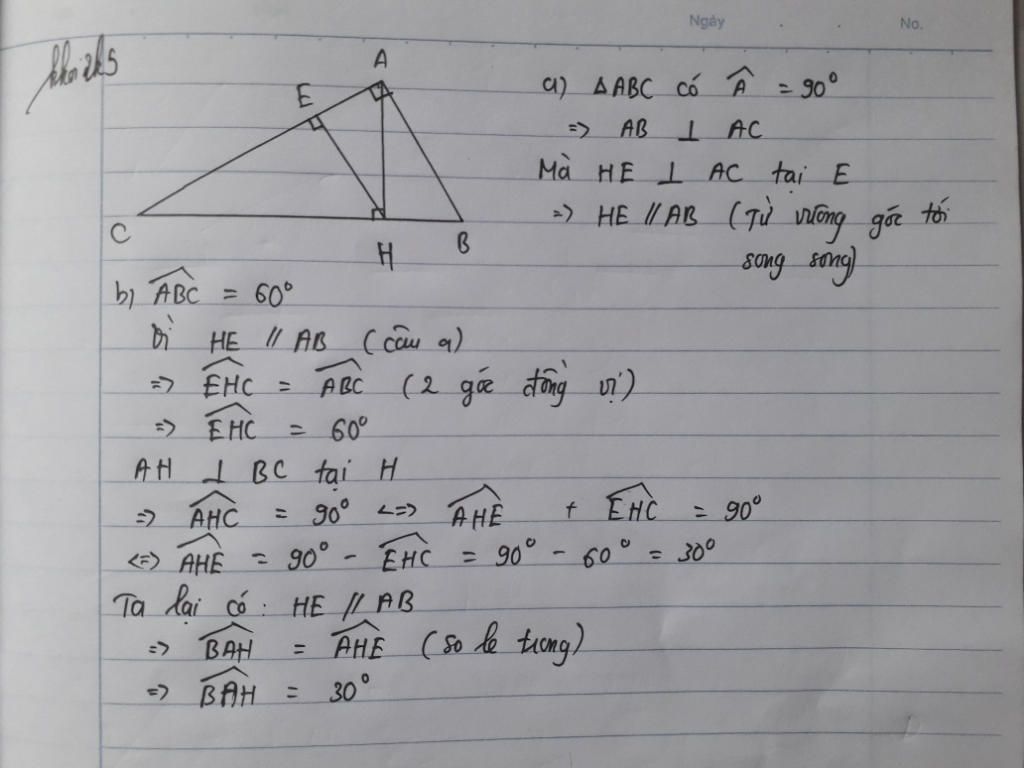 Ngày . . No.
khoi2k5
A
E
C
H
B
a) △ABC có Â = 90°
=> AB ⊥ AC
Mà HE ⊥ AC tại E
=> HE // AB (Từ vuông góc tới
song song)
b) \widehat{ABC} = 60°
Vì HE // AB (câu a)
=> \widehat{EHC} = \widehat{ABC} (2 góc đồng vị)
=> \widehat{EHC} = 60°
AH ⊥ BC tại H
=> \widehat{AHC} = 90° <=> \widehat{AHE} + \widehat{EHC} = 90°
<=> \widehat{AHE} = 90° - \widehat{EHC} = 90° - 60° = 30°
Ta lại có: HE // AB
=> \widehat{BAH} = \widehat{AHE} (so le trong)
=> \widehat{BAH} = 30°